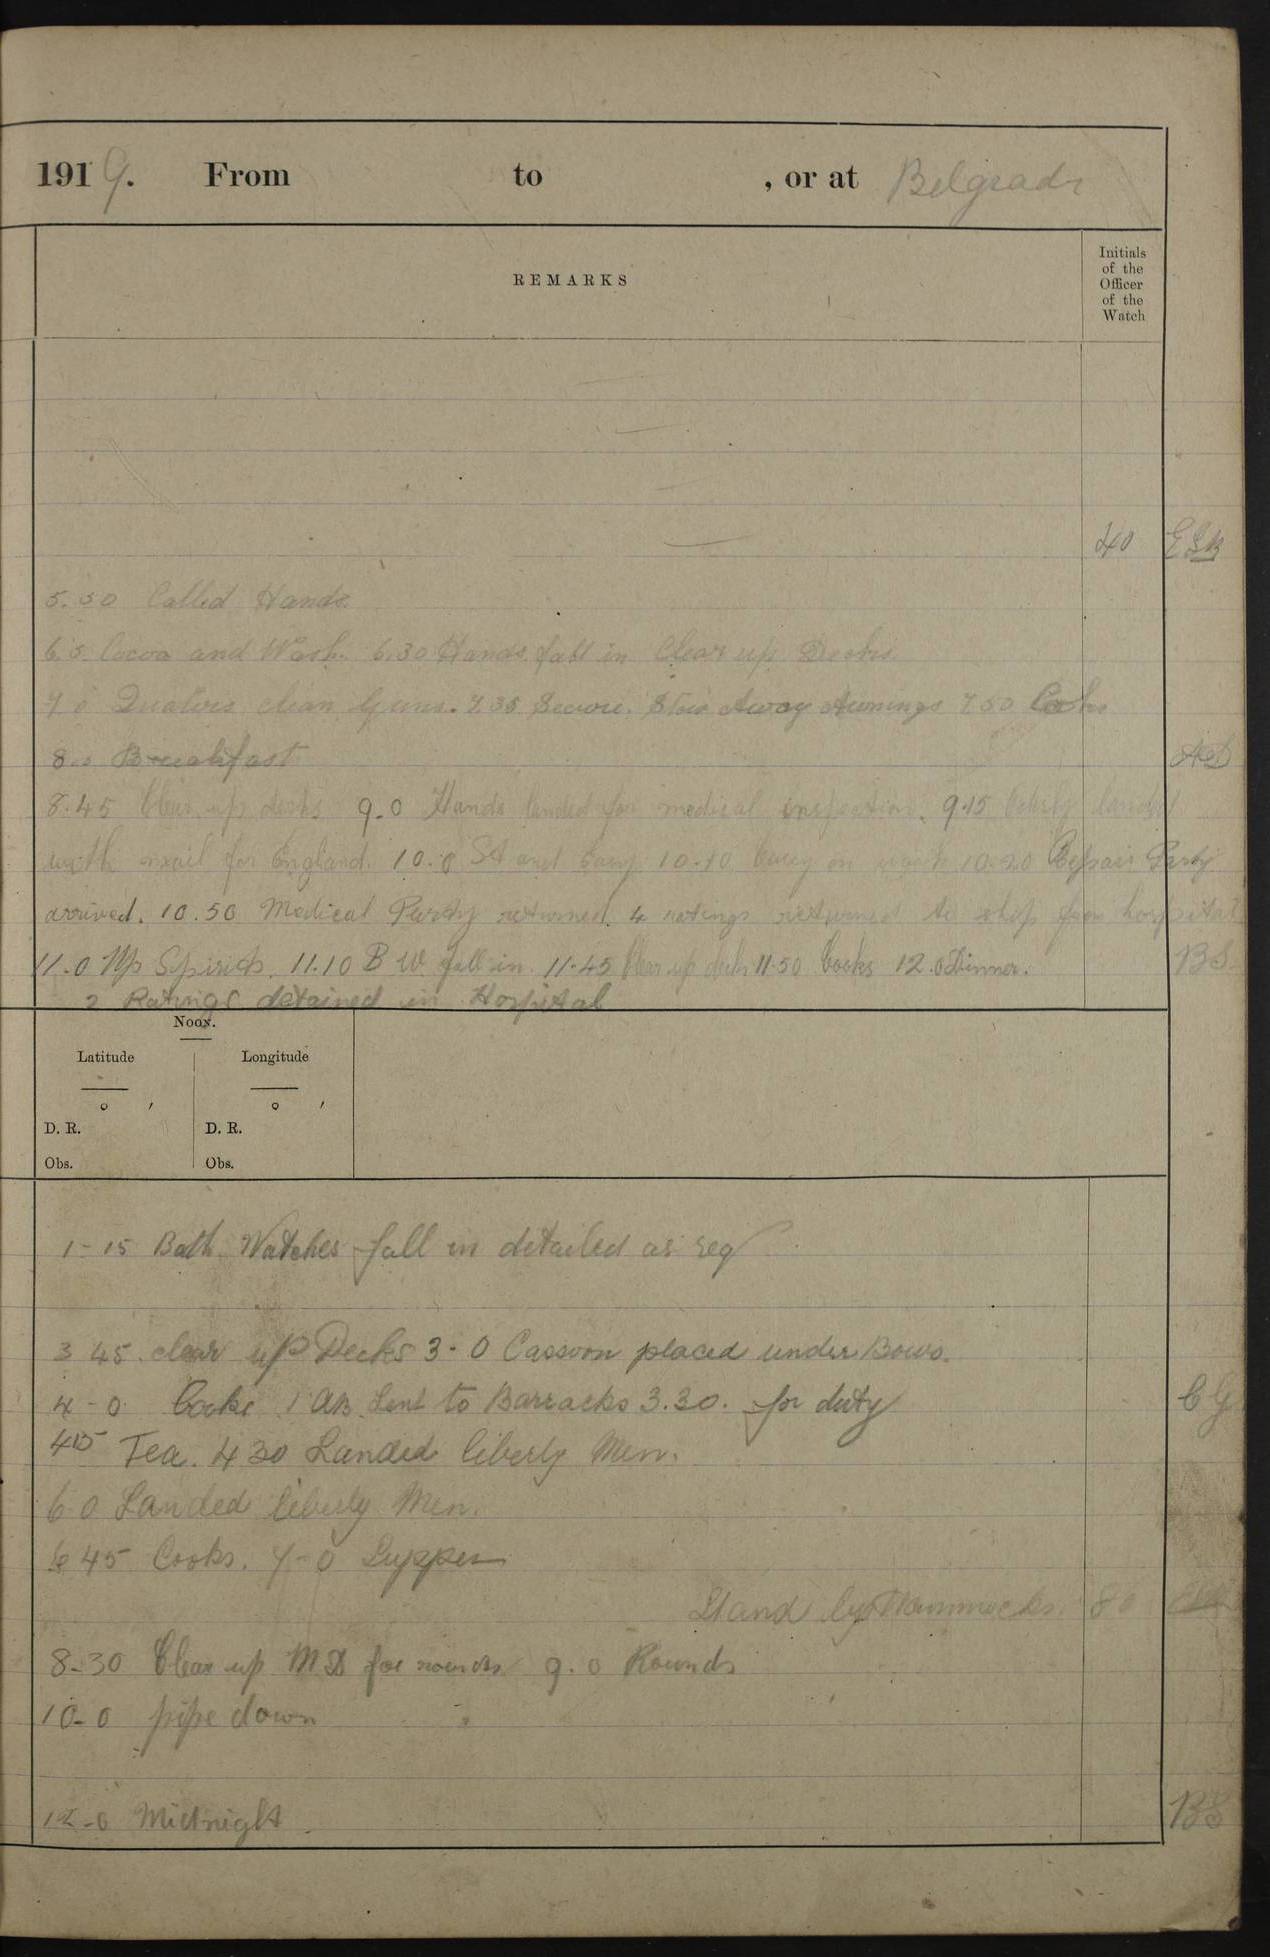 1919. From to , or at Belgrade
REMARKS
Initials
of the
Officer
of the
Watch
40 ESB
5.50 Called Hands.
6.5 Cocoa and Wash. 6.30 Hands fall in Clear up Decks
7 0 Quaters clean Guns. 7.35 Secure. Stow Away Awnings 7 50 Cooks
8.0 Breakfast
8.45 Clear up decks 9.0 Hands landed for medical inspection. 9.15 landed
with mail for England. 10.0 St and Easy 10.10 Carry on work 10.20 Repair Party
arrived. 10.50 Medical Party returned. 4 ratings returned to ship from hospital
11.0 Up Spirits. 11.10 B W fall in. 11.45 Clear up decks 11.50 Cooks 12.0 Dinner. BS
2 Ratings detained in Hospital
Noon.
Latitude Longitude
° ′ ° ′
D. R. D. R.
Obs. Obs.
1-15 Both Watches fall in detailed as req
3 45. clear up Decks 3-0 Cassoon placed under Bows.
4-0 Cooks 1 AB Sent to Barracks 3.30. for duty CG
415 Tea. 4 30 Landed liberty Men.
6 0 Landed liberty Men.
6 45 Cooks. 7-0 Supper
Stand by Hammocks. 80
8-30 Clear up MD for rounds 9.0 Rounds
10-0 pipe down
12-0 Midnight. BS